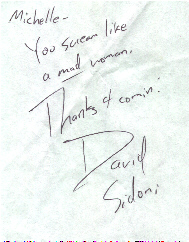 Michelle-
You scream like
a mad woman.
Thanks 4 comin!
David
Sidoni